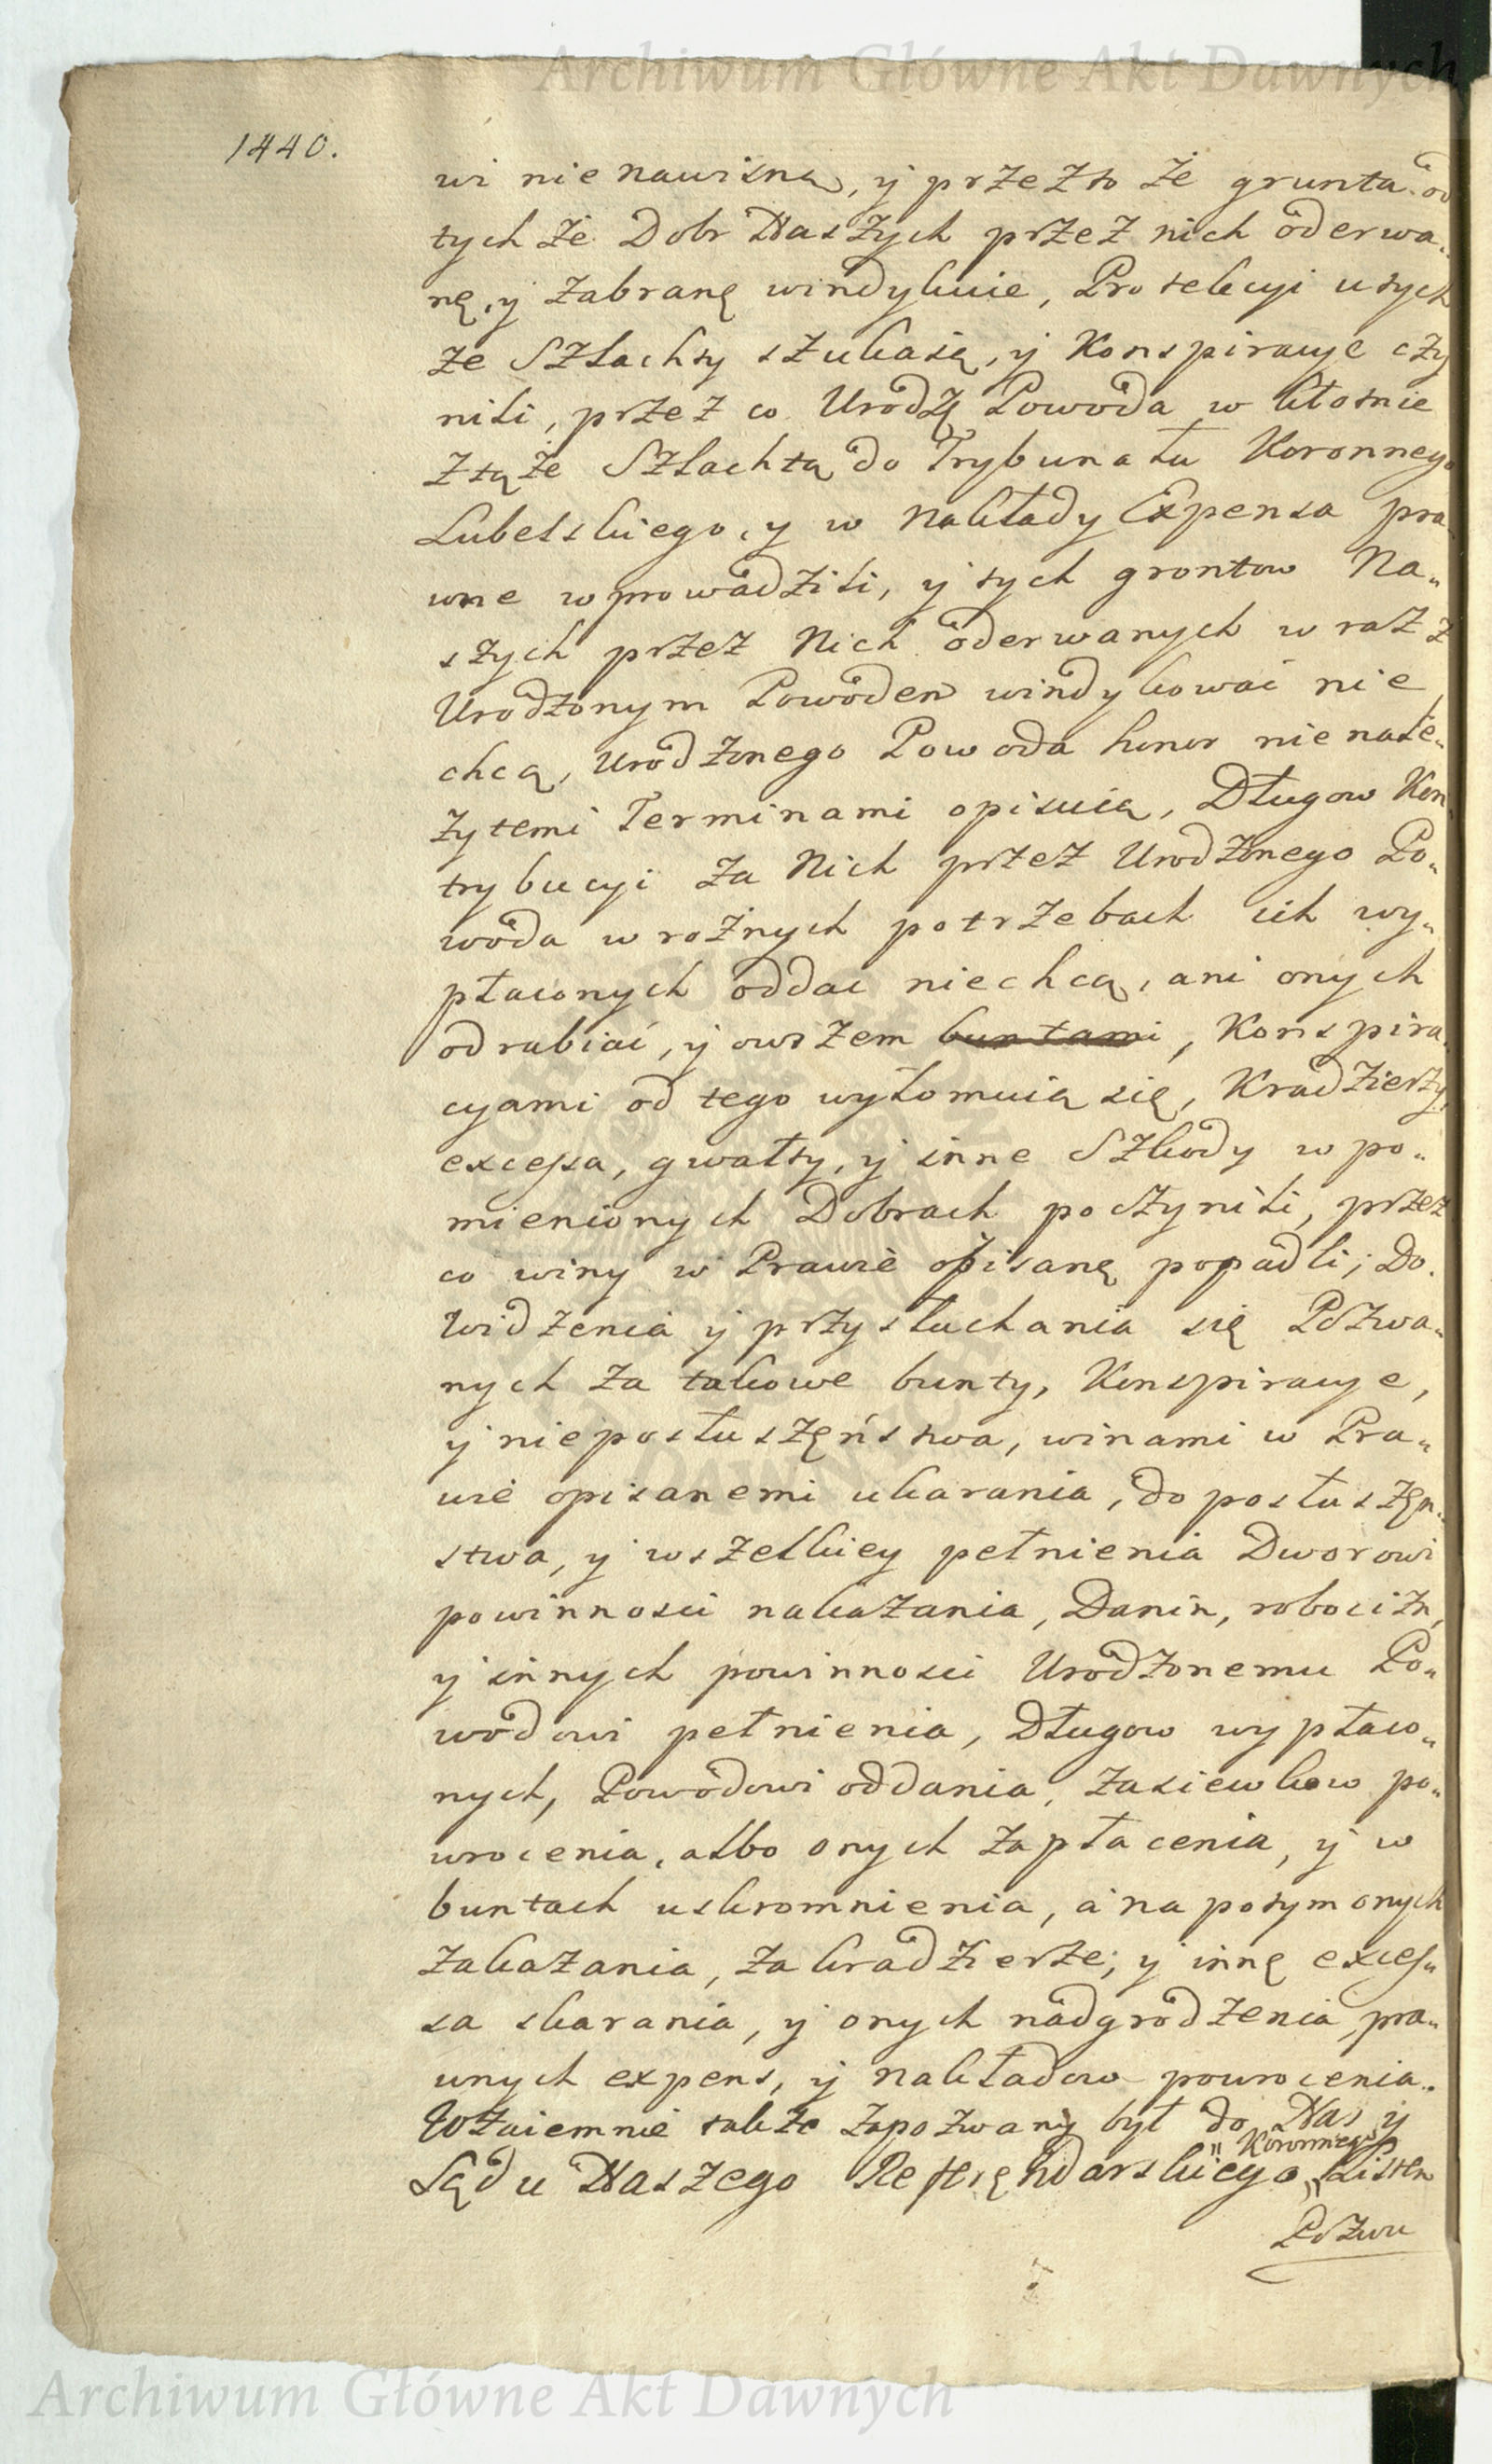 Archiwum Główne Akt Dawnych
1440.
wi nienawisną, ÿ przezto że grunta od
tychże Dobr Naszych przez nich oderwa„
nę, ÿ zabranę windykuie, Protekcyi u tych
że Szlachty szukaią, ÿ Konspiracye czy
nili, przez co Urodzę Powoda w kłotnie
z tąże Szlachtą do Trybunału Koronnego
Lubelskiego, y w nakłady Expensa pra
wne wprowadzili, ÿ tych grontow Na„
szych przez Nich oderwanych wraz z
Urodzonym Powodem windykować nie
chcą, Urodzonego Powoda honor nienale„
żytemi Terminami opisuią, Długow Kon
trybucyi za Nich przez Urodzonego Po„
woda w rożnych potrzebach ich wy„
płaconych oddac niechcą, ani onych
odrabiać, ÿ owszem buntami, Konspira
cyami od tego wyłomuią się, Kradzierzy,
excessa, gwałty, ÿ inne Szkody w po„
mienionych Dobrach poczynili, przez
co winy w Prawie opisanę popadli; Do
widzenia ÿ przysłuchania się Pozwa„
nych za takowe bunty, Konspiracye,
ÿ nieposłuszęństwa, winami w Pra„
wie opisanemi ukarania, do posłuszęn„
stwa, ÿ wszelkiey pełnienia Dworowi
powinnosci nakazania, Danin, robocizn,
ÿ innych powinnosci Urodzonemu Po„
wodowi pełnienia, Długow wypłaco„
nych, Powodowi oddania, zasiewkow po„
wrocenia, albo onych zapłacenia, ÿ w
buntach uskromnienia, a na potym onych
zakazania, za kradzierze, ÿ innę exces„
sa skarania, ÿ onych nadgrodzenia, pra„
wnych expens, ÿ nakładow powrocenia.
Wzaiemnie także zapozwany był do Nas ÿ
Sądu Naszego Referęndarskiego „Koronnego„ Listem
Pozwu
Archiwum Główne Akt Dawnych